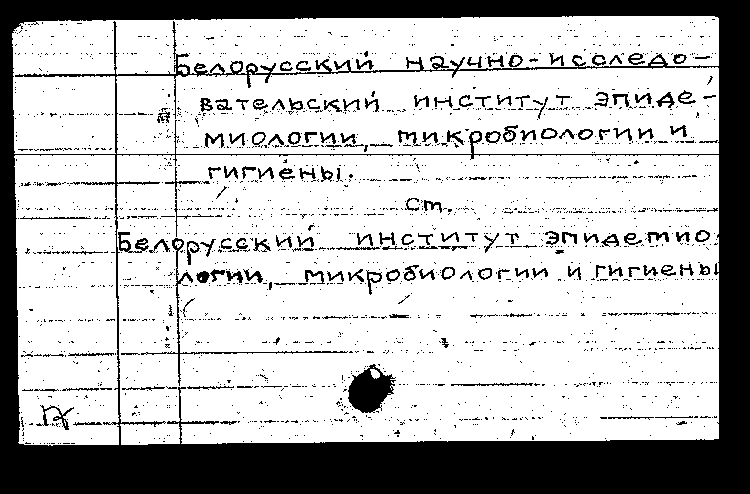 Белорусский научно-исследо-
вательский институт эпиде-
миологии, микробиологии и
гигиены.
Ст.
Белорусский институт эпидемио
логии, микробиологии и гигиены